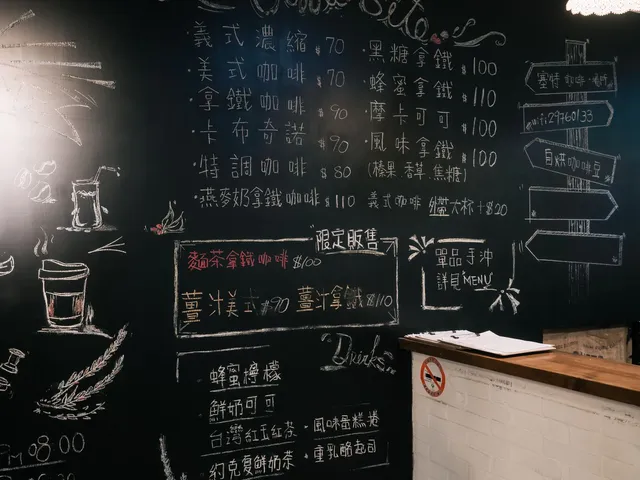 義式濃縮 $70
美式咖啡 $70
拿鐵咖啡 $90
卡布奇諾 $90
特調咖啡 $80
燕麥奶拿鐵咖啡 $110
黑糖拿鐵 $100
蜂蜜拿鐵 $110
摩卡可可 $100
風味拿鐵 $120
(榛果.香草.焦糖)
義式咖啡 灥大杯+$20
限定販售
麵茶拿鐵咖啡 $100
薑汁美式 $90 薑汁拿鐵 $110
單品手沖
詳見"MENU"
wifi 29760133
自烘咖啡豆
Drinks
蜂蜜檸檬
鮮奶可可
台灣紅玉紅茶
約克夏鮮奶茶
風味蛋糕捲
重乳酪起司
PM 08:00